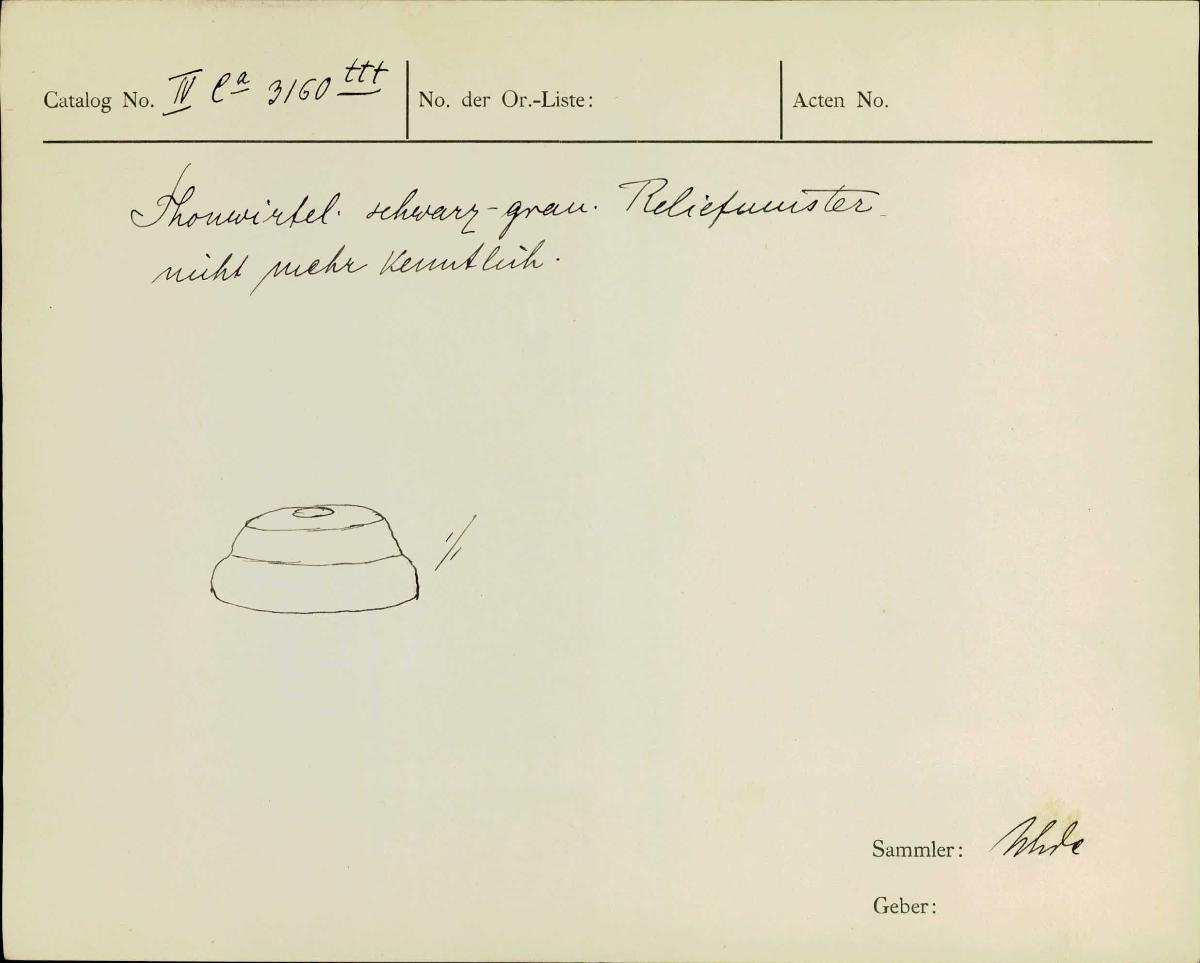 Catalog No. IV Ca 3160 ttt
No. der Or.-Liste:
Acten No.
Thonwirtel. schwarz-grau. Reliefmuster
nicht mehr kenntlich.
1/1
Sammler: Uhde
Geber: